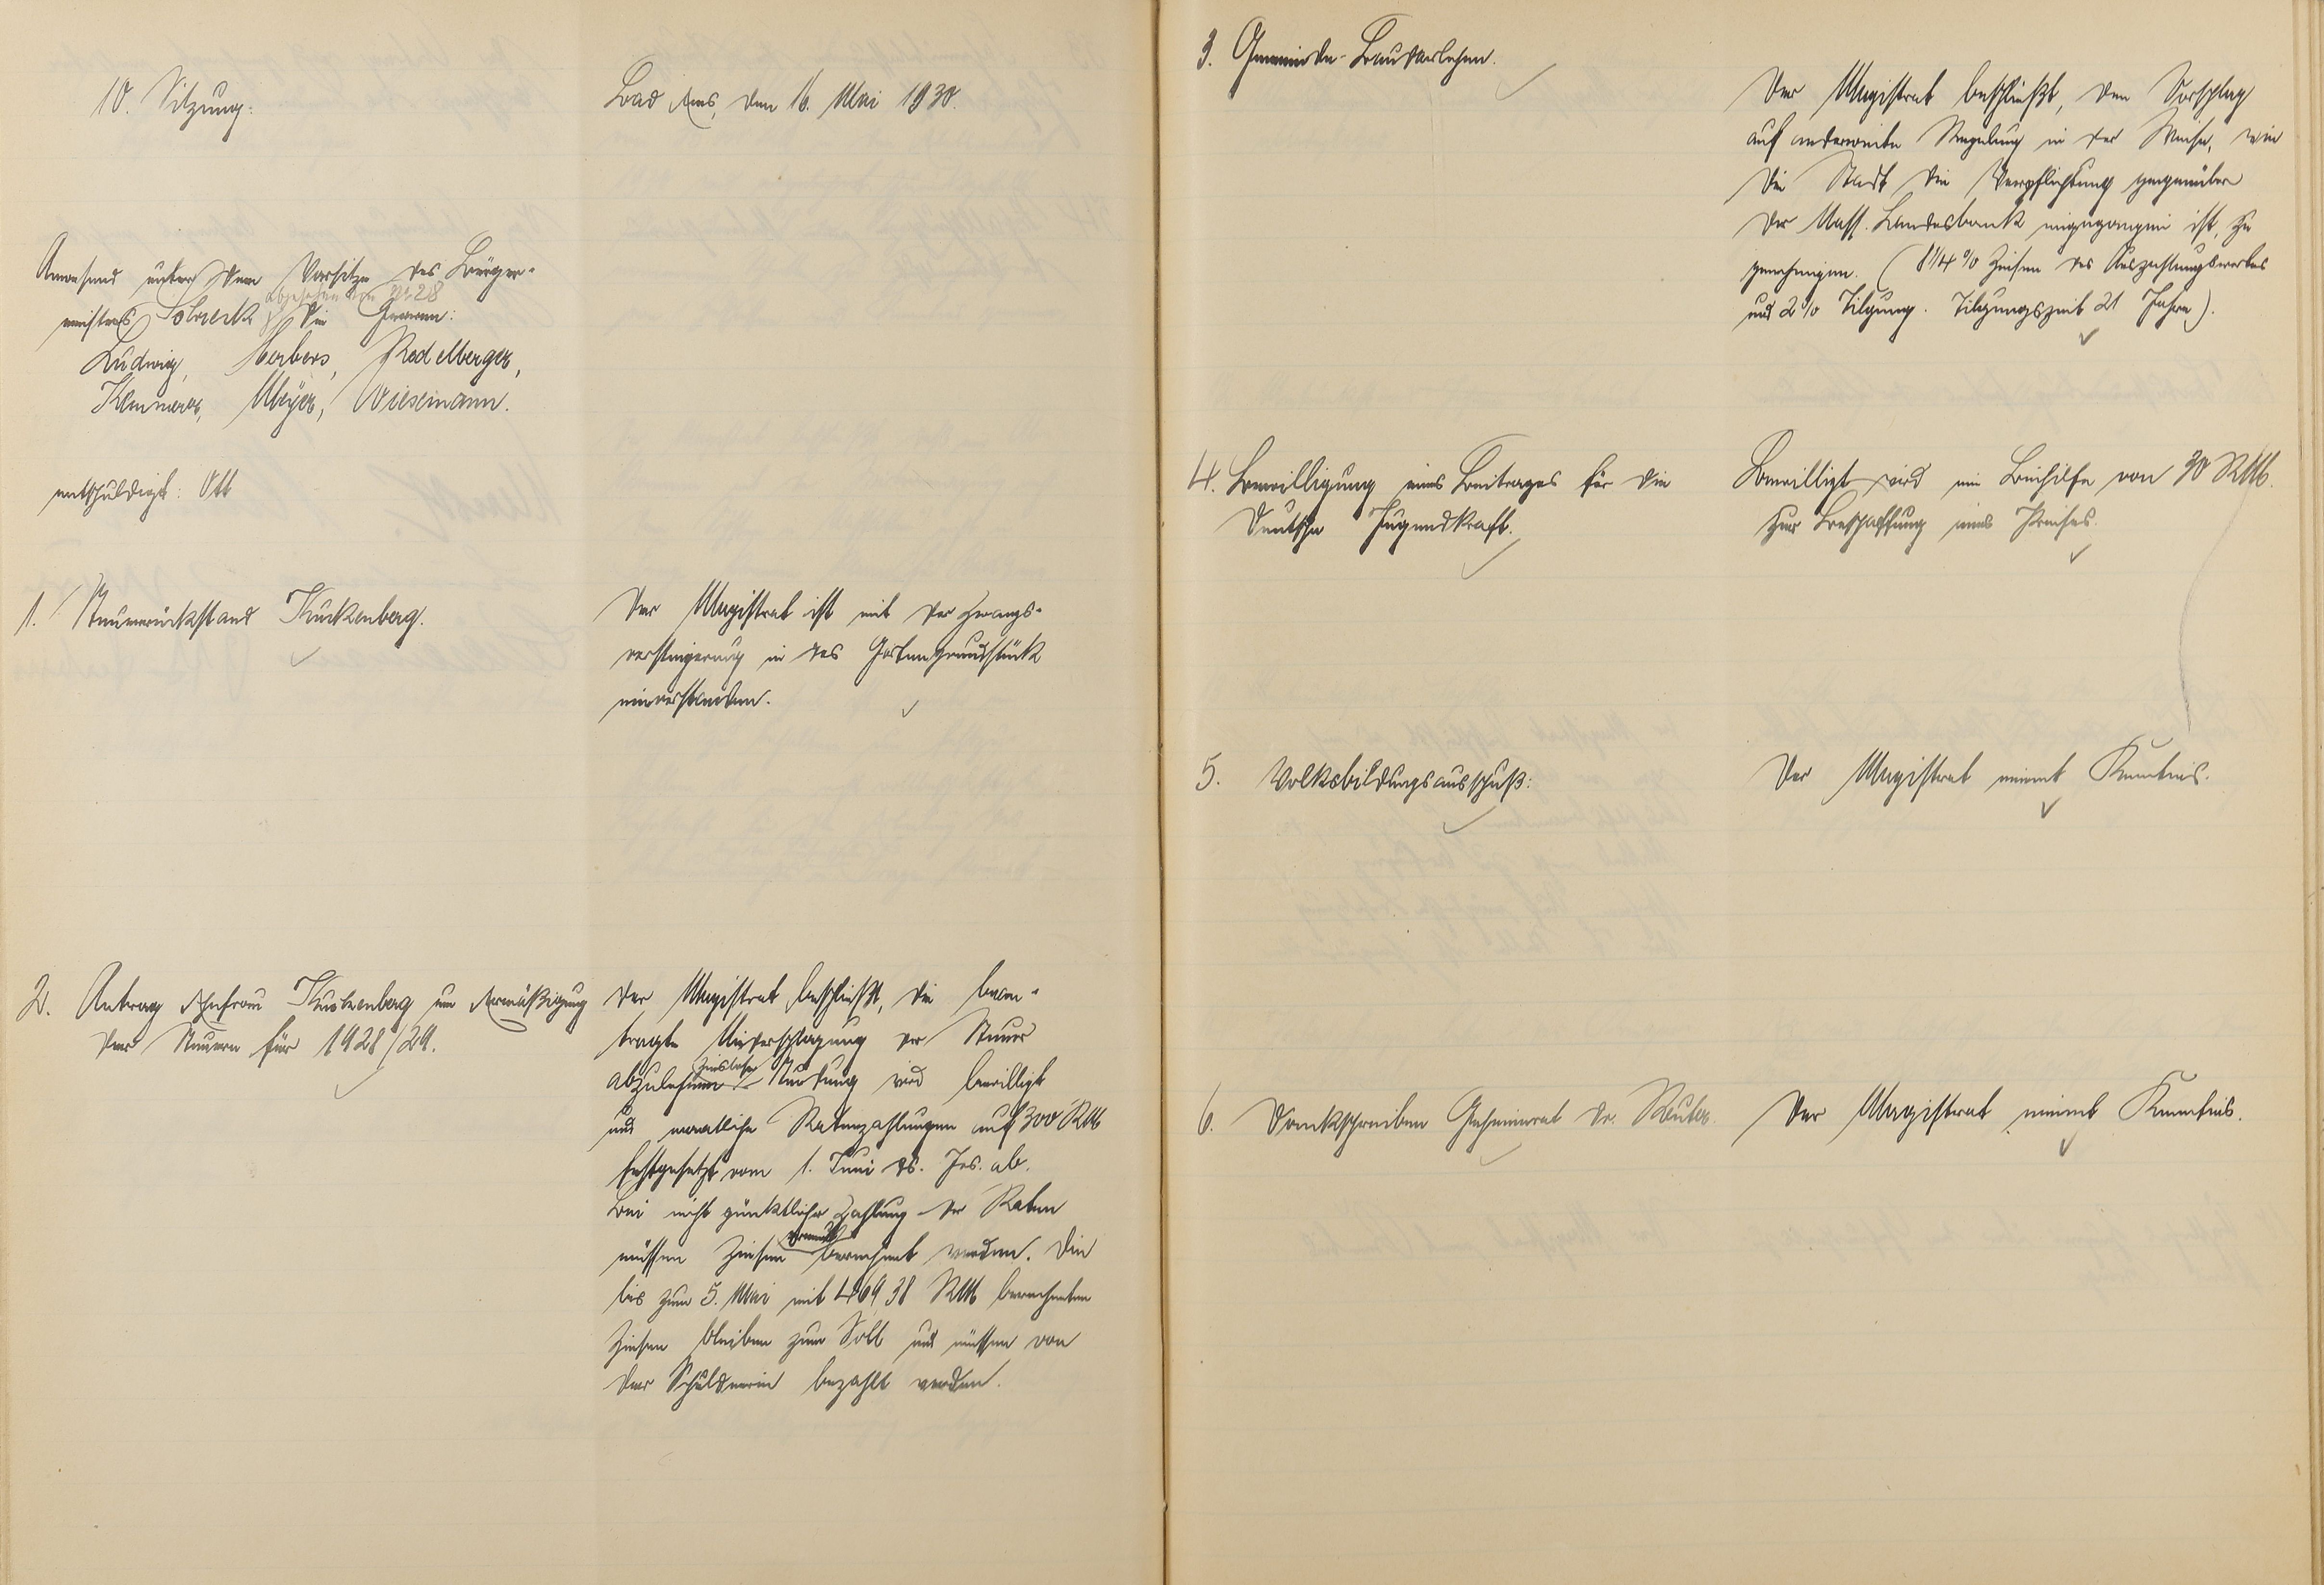 10. Sitzung.
Bad Ems, den 16. Mai 1930.
Anwesend unter dem Vorsitze des Bürger-
abgesehen von Nr. 2 u. 8
meisters die Herren:
Ludwig, Herbers, Redelberger,
Klemmer, Meyer, Wiesemann.
entschuldigt: Ott
1. Steuerrückstand Kuckenberg.
Der Magistrat ist mit der Zwangs-
versteigerung in das Gartengrundstück
einverstanden.
2. Antrag Ehefrau Kuckenberg um Ermäßigung
der Steuern für 1928/29.
Der Magistrat beschließt, die bean-
tragte Niederschlagung der Steuer
abzulehnen. zinslose Stundung wird bewilligt
und monatliche Ratenzahlungen auf 300 RM
festgesetzt vom 1. Juni ds. Js. ab.
Bei nicht pünktlicher Zahlung der Raten
müssen Zinsen berechnet werden. Die
bis zum 5. Mai mit 469,38 RM berechneten
Zinsen bleiben zum Soll und müssen von
der Schuldnerin bezahlt werden.
3. Gemeinde-Baudarlehen.
Der Magistrat beschließt, den Vorschlag
auf anderweite Regelung in der Weise, wie
die Stadt die Verpflichtung gegenüber
der Nass. Landesbank eingegangen ist, zu
genehmigen. (8 1/4 % Zinsen des Auszahlungswertes
und 2 % Tilgung. Tilgungszeit 21 Jahre).
4. Bewilligung eines Beitrages für die
Deutsche Jugendkraft.
Bewilligt wird eine Beihilfe von 30 RM.
zur Beschaffung eines Preises.
5. Volksbildungsausschuß:
Der Magistrat nimmt Kenntnis.
6. Dankschreiben Geheimrat Dr. Reuter.
Der Magistrat nimmt Kenntnis.